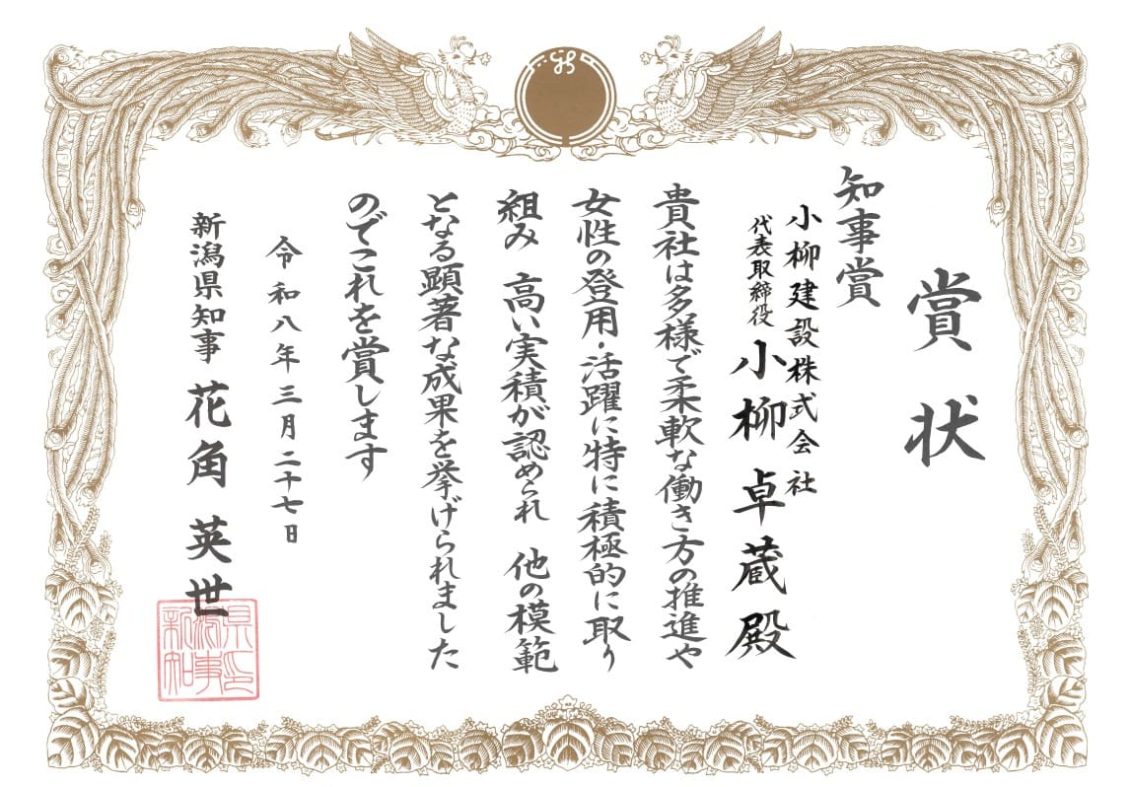 賞状
知事賞
小柳建設株式会社
代表取締役 小柳卓蔵殿
貴社は多様で柔軟な働き方の推進や
女性の登用・活躍に特に積極的に取り
組み 高い実積が認められ 他の模範
となる顕著な成果を挙げられました
のでこれを賞します
令和八年三月二十七日
新潟県知事 花角英世
新潟県知事之印